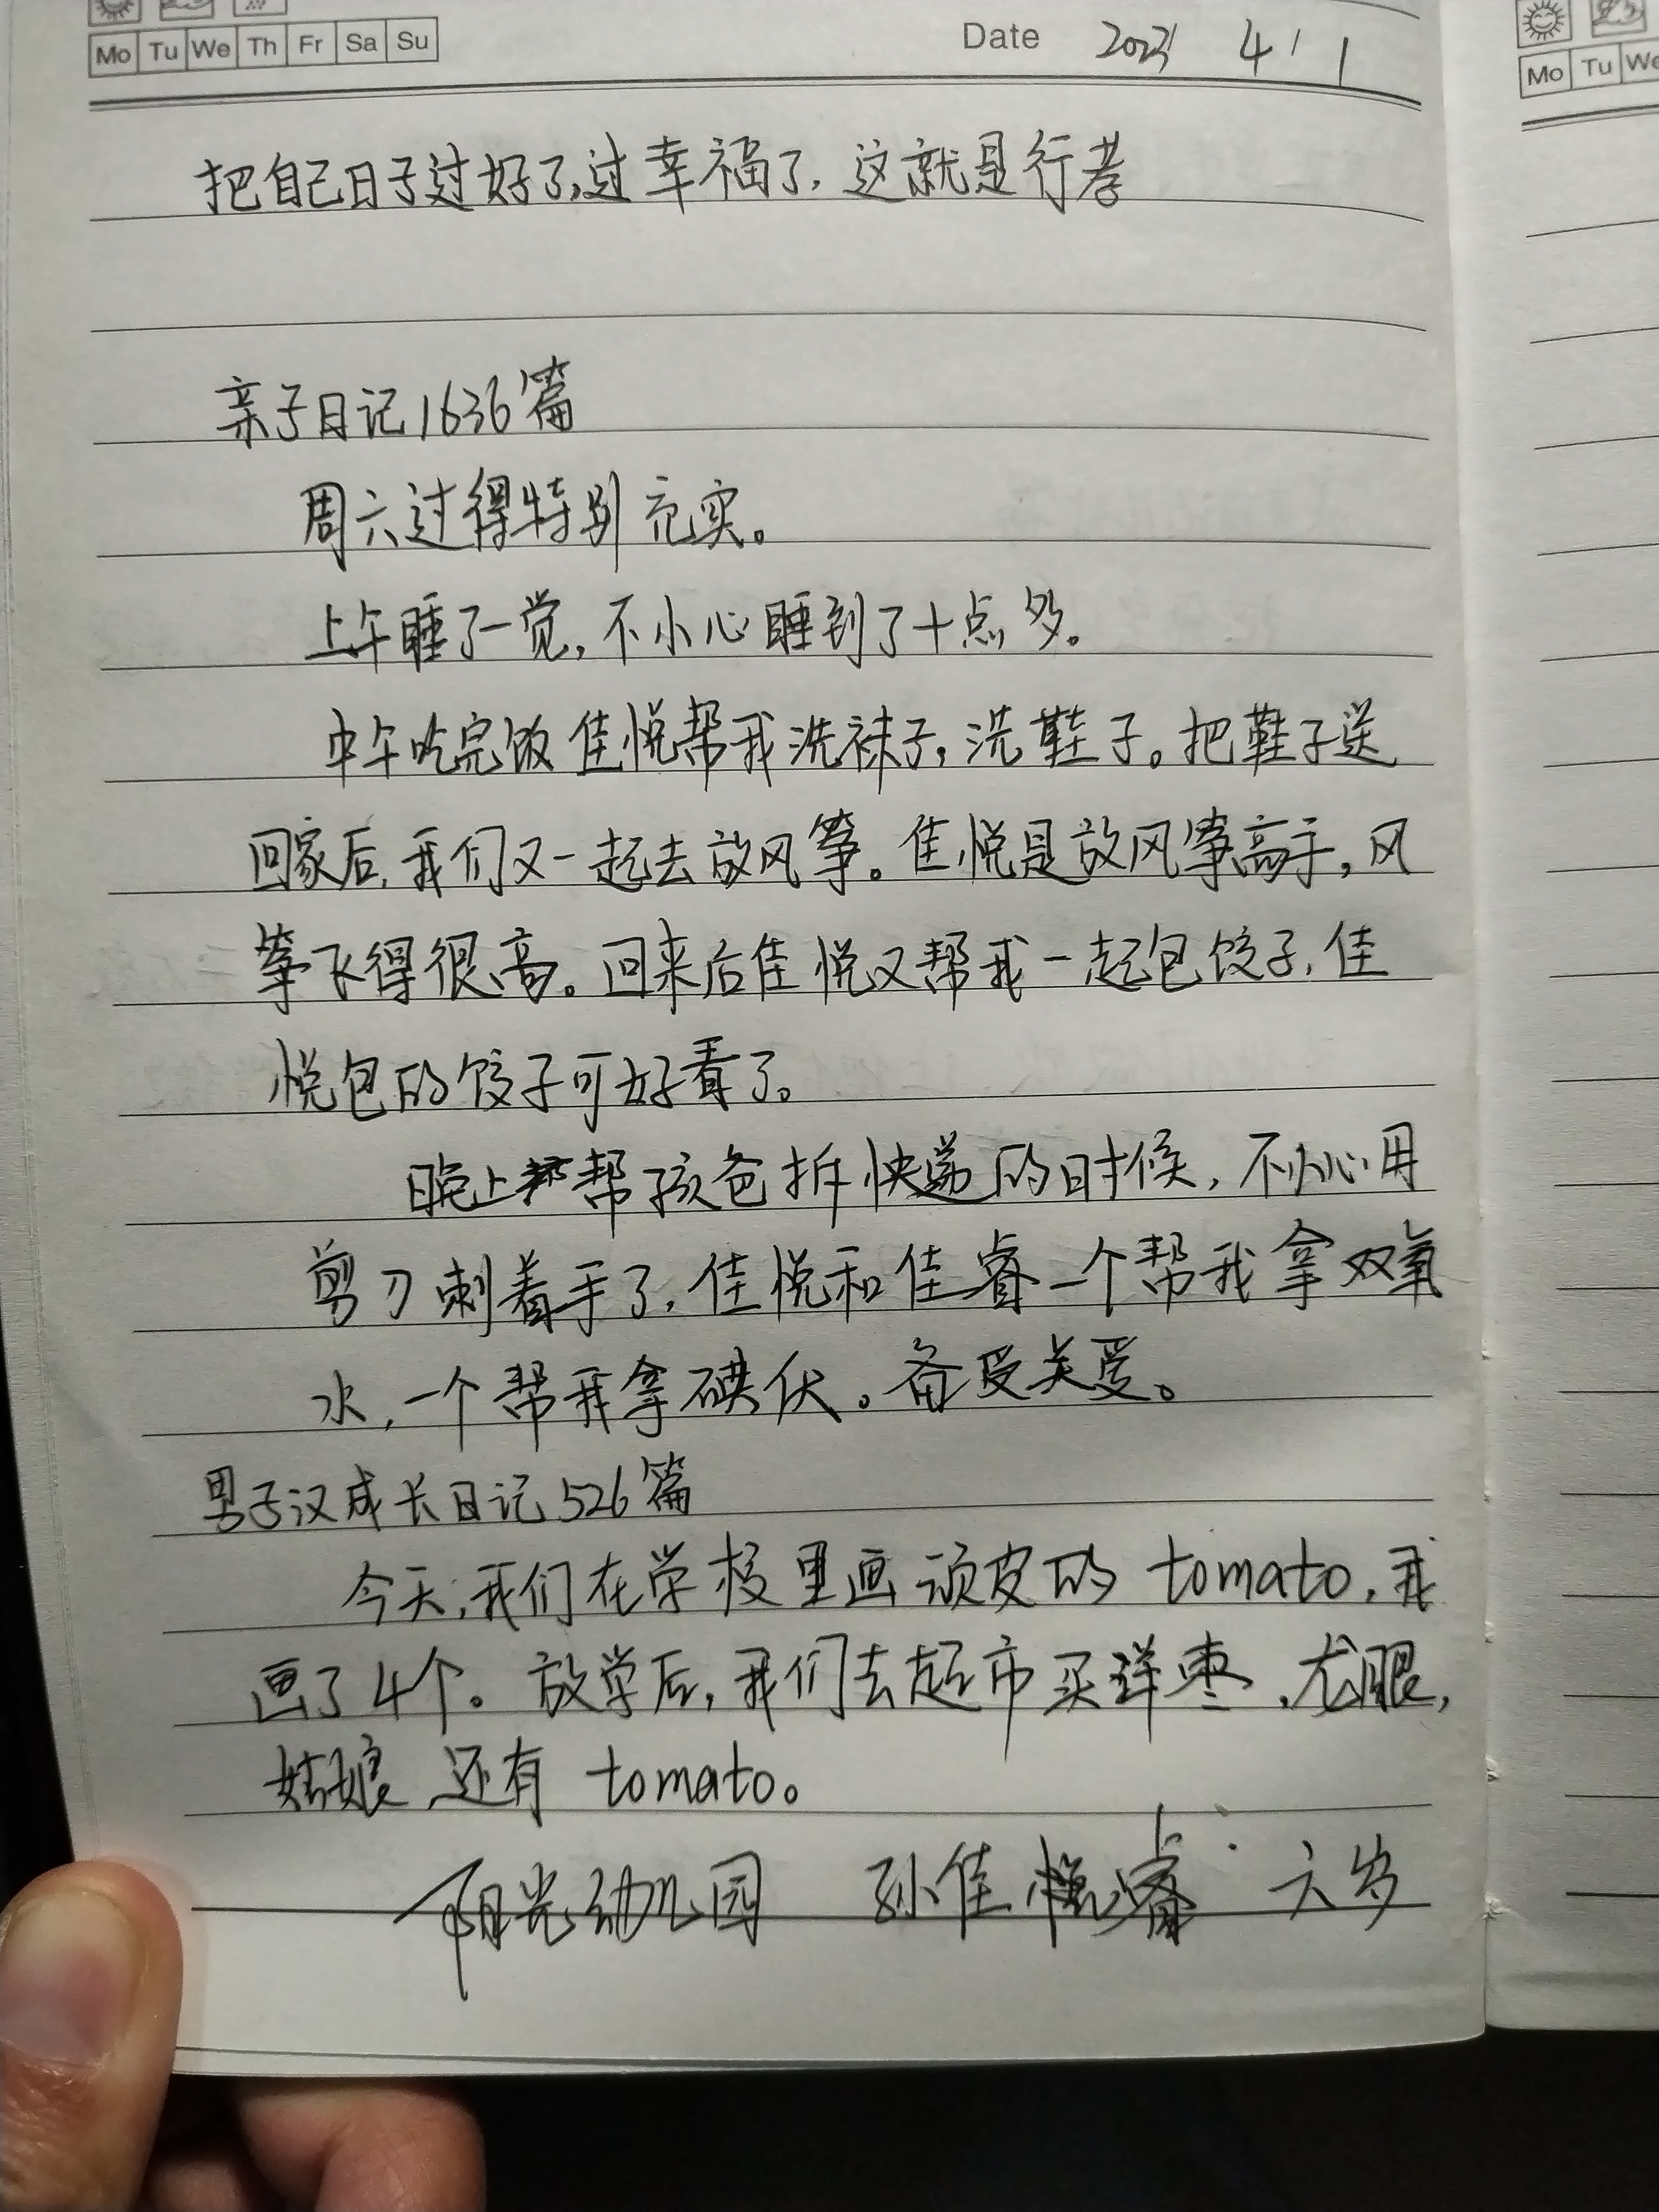 Mo Tu We Th Fr Sa Su
Date 2023 4 / 1
Mo Tu We
把自己日子过好了,过幸福了,这就是行孝
亲子日记1636篇
周六过得特别充实。
上午睡了一觉,不小心睡到了十点多。
中午吃完饭佳悦帮我洗袜子,洗鞋子。把鞋子送
回家后,我们又一起去放风筝。佳悦是放风筝高手,风
筝飞得很高。回来后佳悦又帮我一起包饺子,佳
悦包的饺子可好看了。
晚上帮孩爸拆快递的时候,不小心用
剪刀刺着手了,佳悦和佳睿一个帮我拿双氧
水,一个帮我拿碘伏。备受关爱。
男子汉成长日记526篇
今天,我们在学校里画顽皮的 tomato,我
画了4个。放学后,我们去超市买洋枣,龙眼,
姑娘,还有 tomato。
阳光幼儿园 孙佳睿 六岁